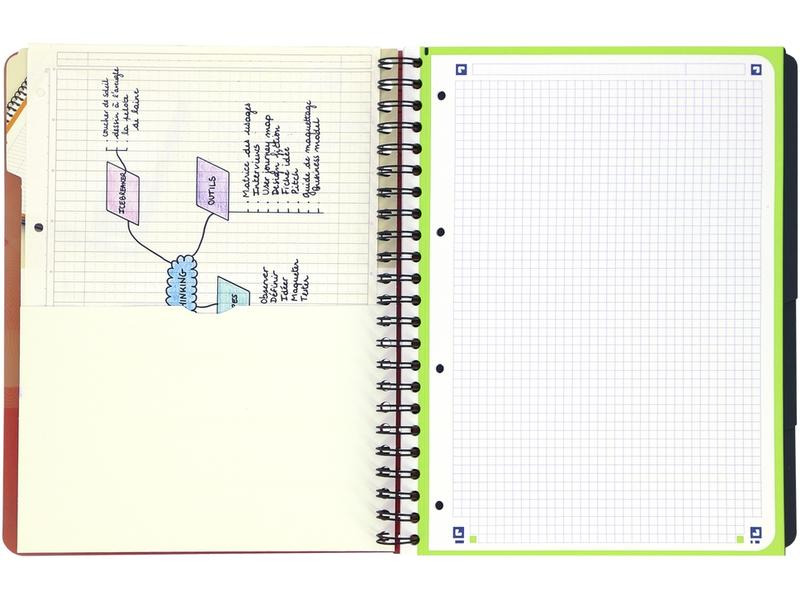 . coucher de soleil
. dessin à l'aveugle
. la pelote
de laine
ICEBREAKER
OUTILS
. Matrice des usages
. Interviews
. User journey map
. Design fiction
. Fiche idée
. Pitch
. guide de maquettage
. Business model
HINKING
PES
Observer
Définir
Idéer
Maqueter
Tester